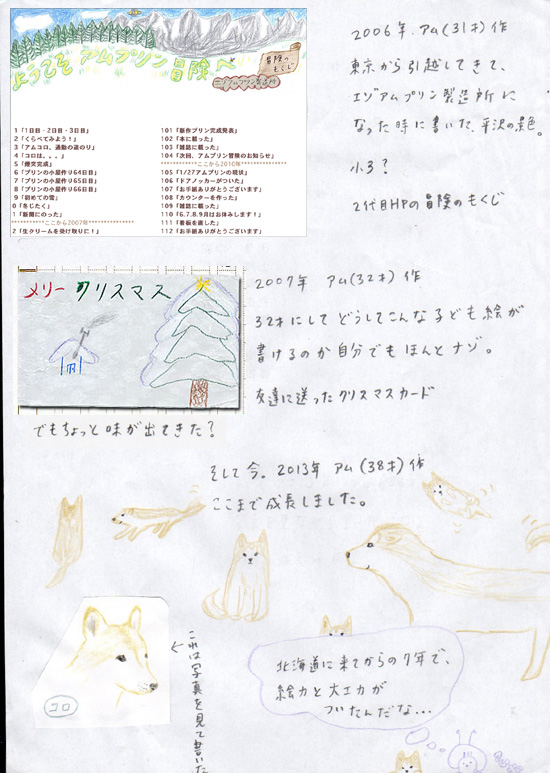 ようこそ アムプリン冒険へ
冒険の
もくじ
エゾアムプリン製造所
1「1日目・2日目・3日目」
2「くらべてみよう！」
3「アムコロ、通勤の道のり」
4「コロは。。。」
5「煙突完成」
6「プリンの小屋作り64日目」
7「プリンの小屋作り65日目」
8「プリンの小屋作り66日目」
9「初めての雪」
0「冬じたく」
1「新聞にのった」
**************ここから2007年**************
2「生クリームを受け取りに！」
101「新作プリン完成発表」
102「本に載った」
103「雑誌に載った」
104「次回、アムプリン冒険のお知らせ」
**************ここから2010年**************
105「1/27アムプリンの現状」
106「ドアノッカーがついた」
107「お手紙ありがとうございます」
108「カウンターを作った」
109「雑誌に載った」
110「6.7.8.9月はお休みします！」
111「看板を直した」
112「お手紙ありがとうございます」
2006年.アム(31才)作
東京から引越してきて、
エゾアムプリン製造所に
なった時に書いた、平沢の景色。
小3？
2代目HPの冒険のもくじ
メリー クリスマス
2007年 アム(32才)作
32才にして どうしてこんな子ども絵が
書けるのか自分でもほんとナゾ。
友達に送ったクリスマスカード
でもちょっと味が出てきた？
そして今。2013年 アム(38才)作
ここまで成長しました。
コロ
これは写真を見て書いた
北海道に来てからの7年で、
絵力と大工力が
ついたんだな...